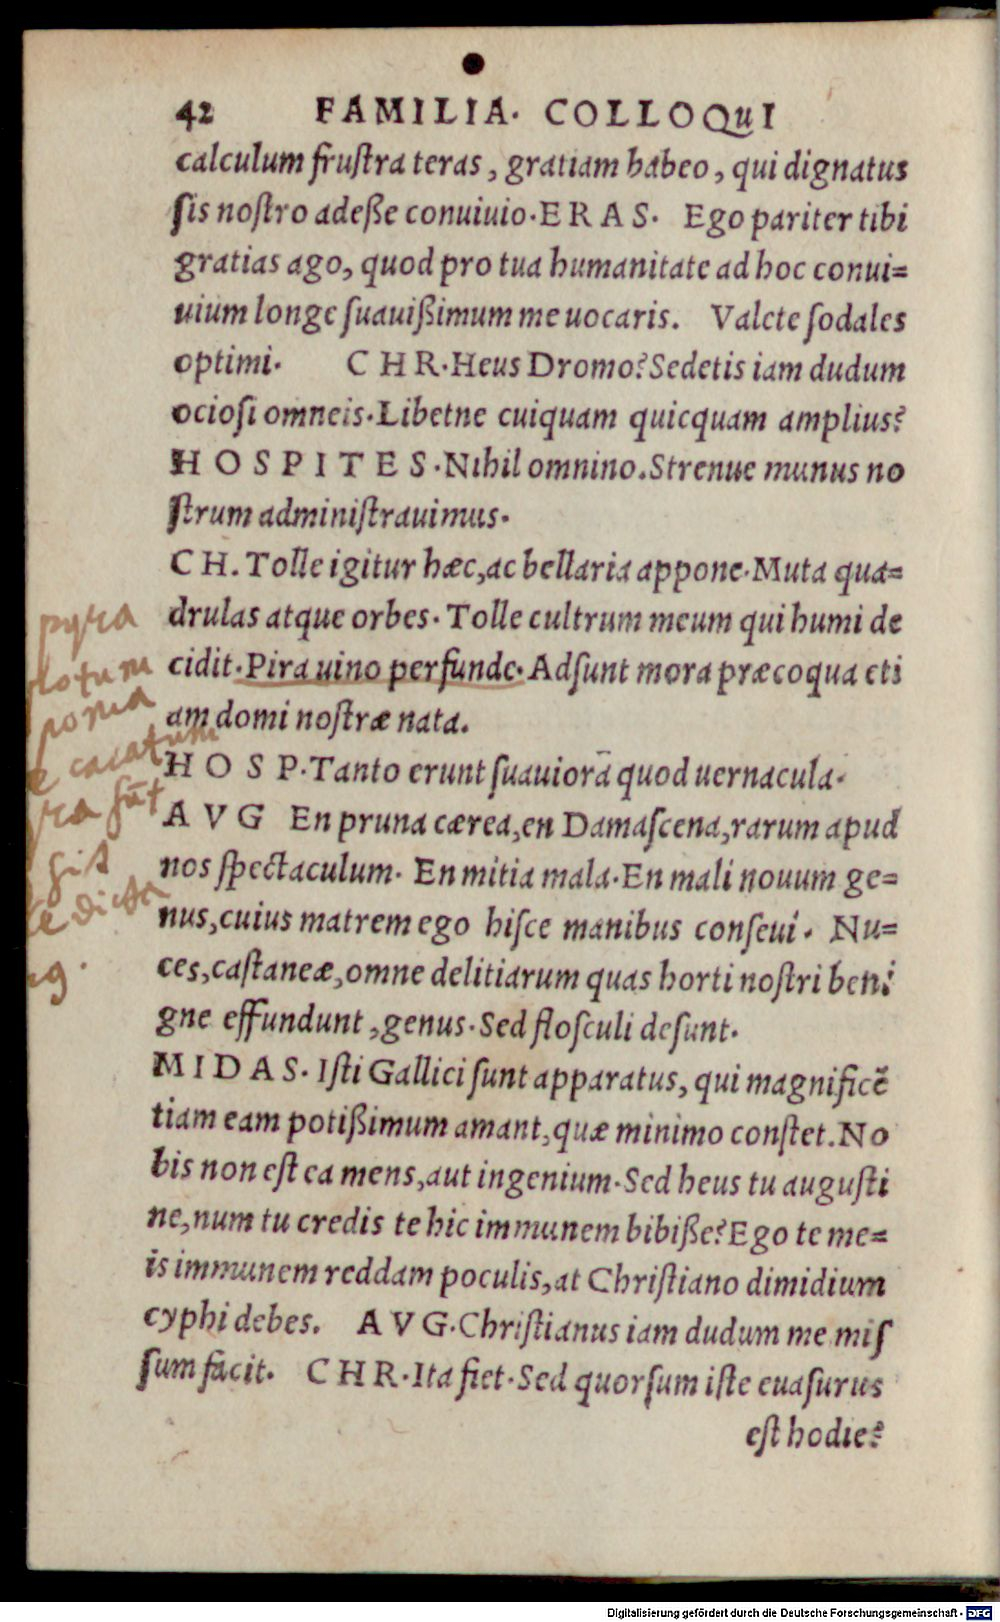 42 FAMILIA. COLLOQuI
calculum fruſtra teras, gratiam habeo, qui dignatus
ſis noſtro adeße conuiuio. ERAS. Ego pariter tibi
gratias ago, quod pro tua humanitate ad hoc conui=
uium longe ſuauißimum me uocaris. Valete ſodales
optimi. CHR. Heus Dromo? Sedetis iam dudum
ocioſi omneis. Libetne cuiquam quicquam amplius?
HOSPITES. Nihil omnino. Strenue munus no
ſtrum adminiſtrauimus.
CH. Tolle igitur hæc, ac bellaria appone. Muta qua=
drulas atque orbes. Tolle cultrum meum qui humi de
cidit. Pira uino perfunde. Adſunt mora præcoqua eti
am domi noſtræ nata.
HOSP. Tanto erunt ſuauiorã quod uernacula.
AVG En pruna cærea, en Damaſcena, rarum apud
nos ſpectaculum. En mitia mala. En mali nouum ge=
nus, cuius matrem ego hiſce manibus conſeui. Nu=
ces, caſtaneæ, omne delitiarum quas horti noſtri beni
gne effundunt, genus. Sed floſculi deſunt.
MIDAS. Iſti Gallici ſunt apparatus, qui magnificē
tiam eam potißimum amant, quæ minimo conſtet. No
bis non eſt ea mens, aut ingenium. Sed heus tu auguſti
ne, num tu credis te hic immunem bibiße? Ego te me=
is immunem reddam poculis, at Chriſtiano dimidium
cyphi debes. AVG. Chriſtianus iam dudum me miſ
ſum facit. CHR. Ita fiet. Sed quorſum iſte euaſurus
eſt hodie?
pyra
potum
poma
cacatum
ra sūt
git
dicta
Digitalisierung gefördert durch die Deutsche Forschungsgemeinschaft - DFG